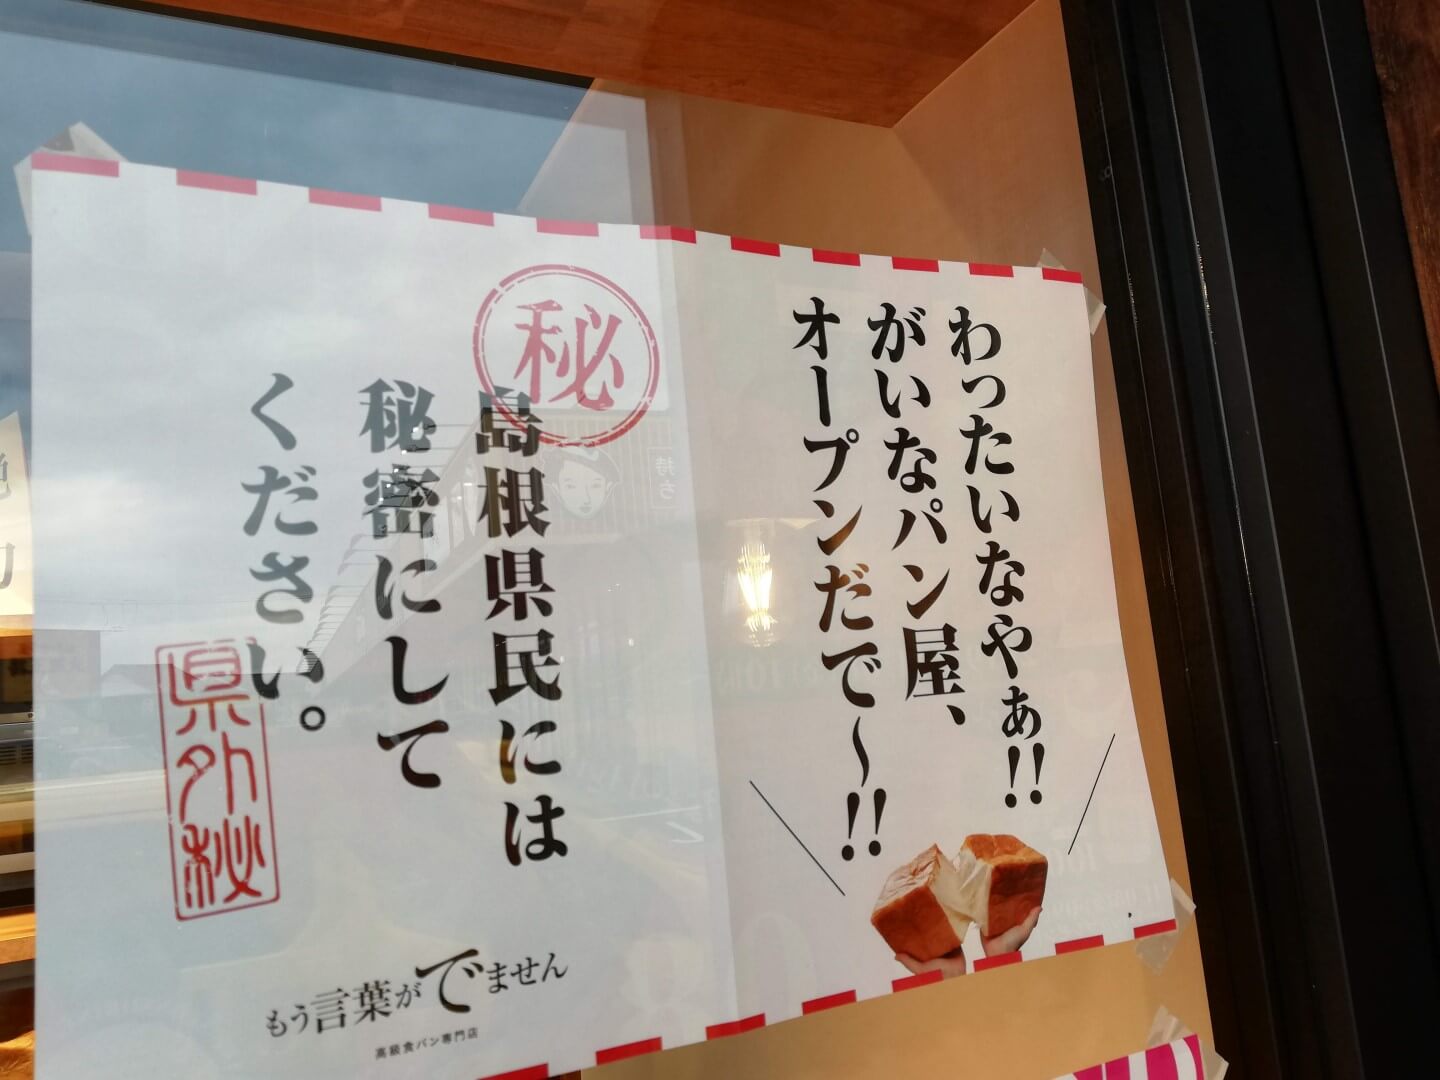 わったいなやぁ!!
がいなパン屋、
オープンだで〜!!
秘
島根県民には
秘密にして
ください。
県外秘
もう言葉がでません
高級食パン専門店